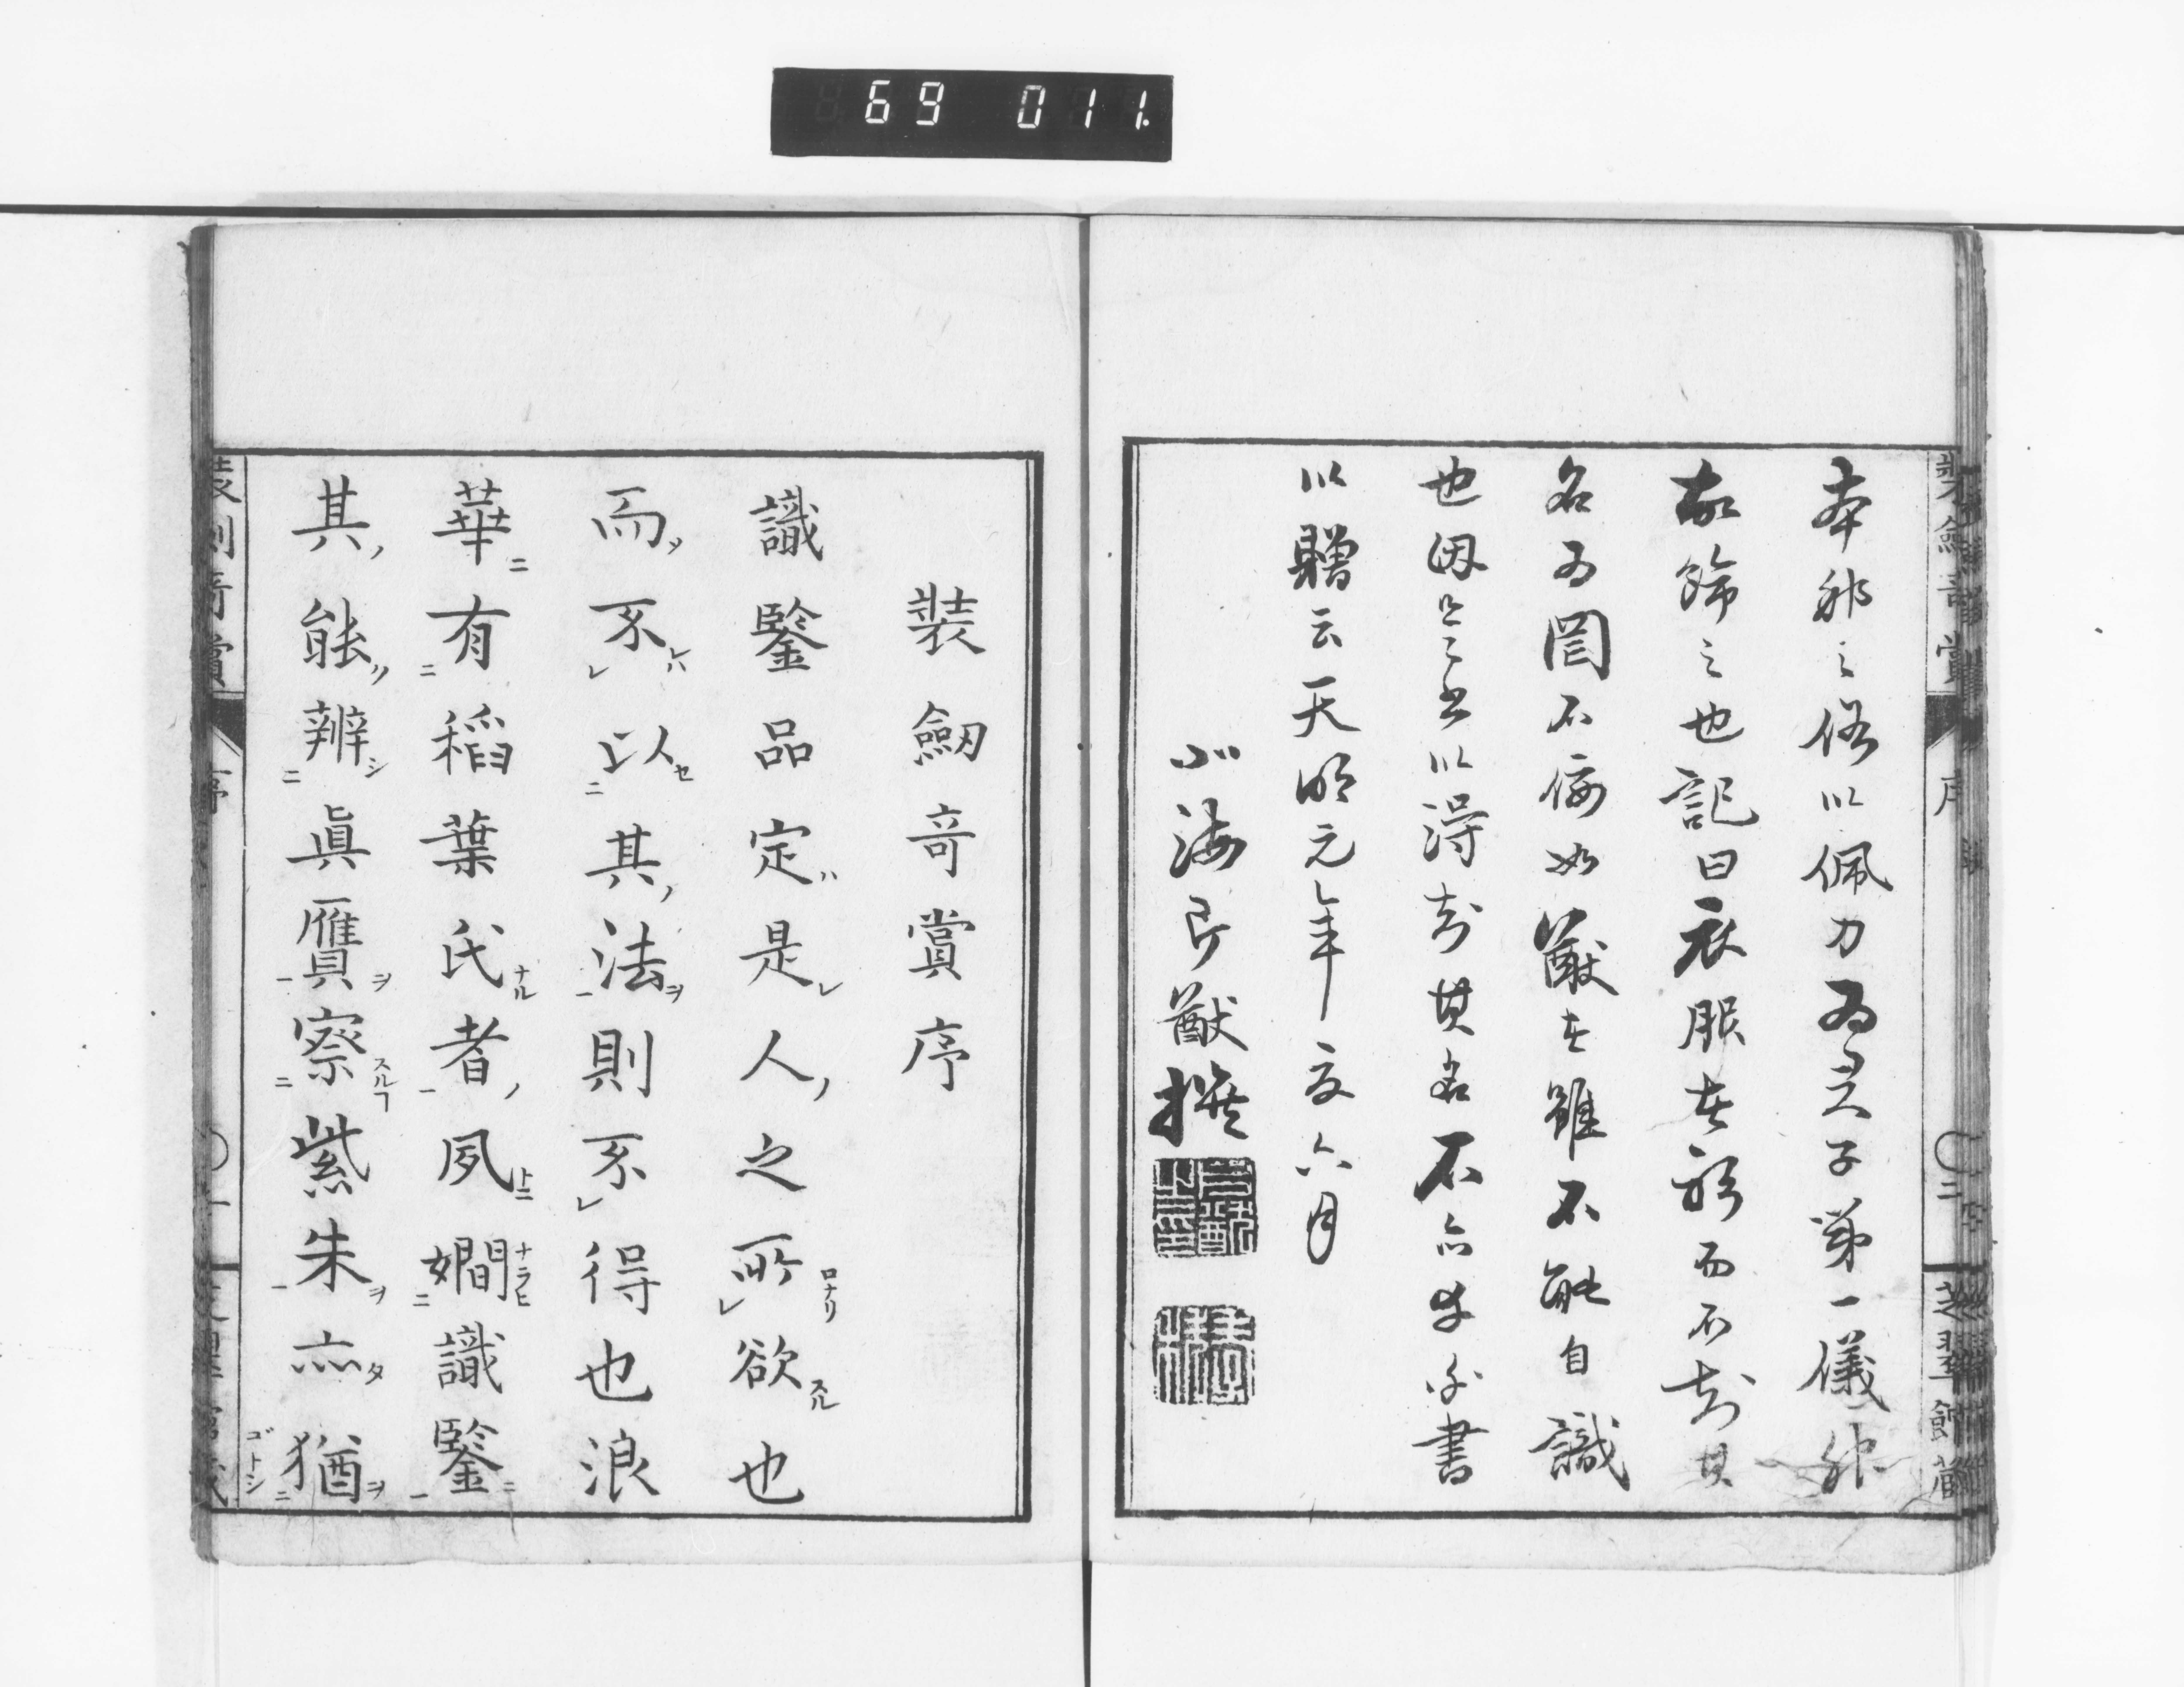 69 011.
装劔奇賞 序 〇二
本邦之俗以佩刀為君子第一儀
故飾之也記曰衣服在躬而不知其
名為罔不佞如猷者雖不能自識
也因是書以得知其名不亦幸乎書
以贈云天明元年夏六月
北海片猷撰
装劔竒賞序
識鑒品定是人之所欲也
而不以其法則不得也浪
華有稻葉氏者夙嫺識鑒
其能辨眞贋察紫朱亦猶